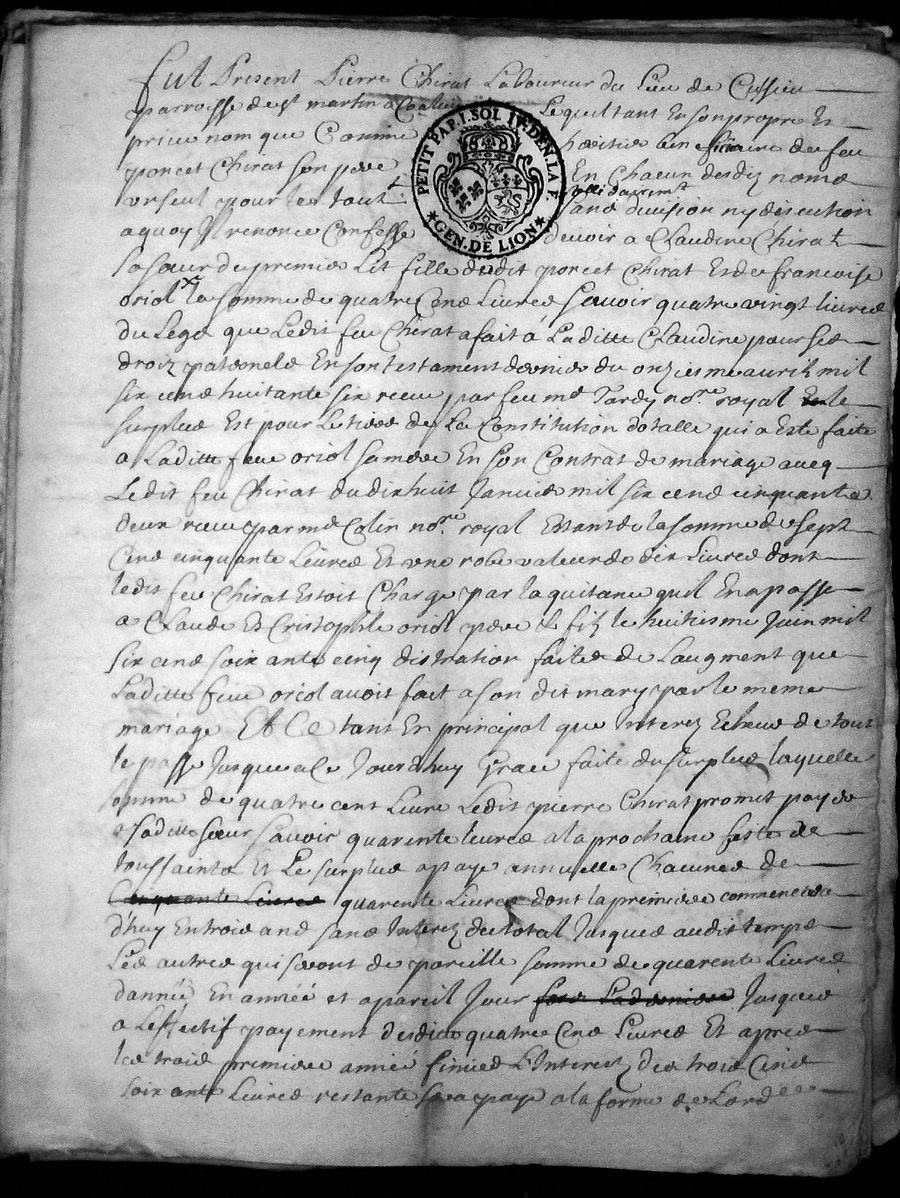 Fut Present Pierre Chirat Laboureur du Lieu de Cussieu
parroisse de st martin a Coaleu Lequel tant En son propre Et
prive nom que Comme heritier beneficiaire de feu
poncet Chirat son pere En Chacun desdiz noms
un seul pour le tout sollidairemt
sans division ny discution
a quoy Il renonce Confesse devoir a Claudine Chirat
sa sœur du premier Lit fille dudit poncet Chirat Et de francoise
oriol la somme de quatre Cens Livres scavoir quatre vingt livres
du Legs que Ledit feu Chirat a fait a Laditte Claudine pour ses
droiz paternels En son testament dernier du onziesme auril mil
six cens huitante six receu par feu me Tardy nore royal Et le
surplus Est pour Le tiers de La Constitution dotalle qui a Esté faite
a Laditte feue oriol sa mere En son Contrat de mariage avecq
Ledit feu Chirat du dix huit Janvier mil six cens cinquante
deux receu par me Colin nore royal Estant de la somme de sept
Cens cinquante Livres Et une robe valeur de dix Livres dont
ledit feu Chirat Estoit Chargé par la quitance quil En a passe
a Claude Et Cristophle oriol pere & filz le huitiesme Juin mil
six cens soixante cinq distration faite de Laugment que
Laditte feue oriol avoit fait a son dit mary par le meme
mariage Et Ce tant En principal que Interez Echeus de tout
le passe Jusques a Ce Jourdhuy Grace faite du surplus laquelle
somme de quatre cent Livre Ledit pierre Chirat promet payer
a saditte sœur scavoir quarente livres a la prochaine feste de
toussaintz et Le surplus a paye annuelle Chacunes de
Cinquante Livres quarente Livres dont la premiere commencera
d'huy En trois ans sans Interez du total Jusques audit temps
Les autres qui seront de pareille somme de quarente Livres
dannée En année et a pareil Jour Jusques
a Leffectif payement desdits quatre Cens Livres Et apres
les trois premieres année finies L'Interest des trois Cens
soixante Livres restante sera paye a la forme de Lord
PETIT PAP. I. SOL IV. DEN. LA F.
GEN. DE LION